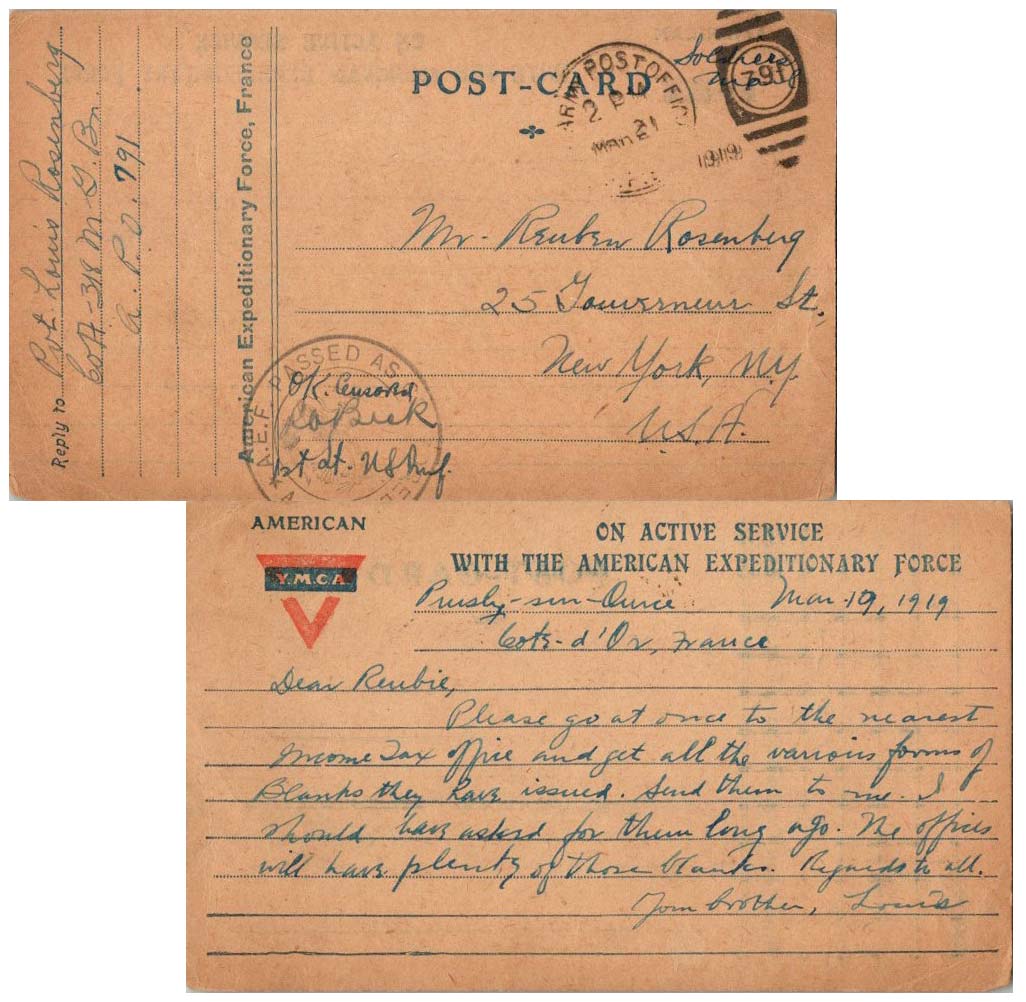 POST-CARD
Soldiers
Mail
ARMY POST OFFICE
2 P M
MAR 21
1919
791
Mr. Reuben Rosenberg
25 Gouverneur St.,
New York, N.Y.
U.S.A.
Reply to Pvt. Louis Rosenberg
Co A-318 M. G. Bn.
A. P. O. 791
American Expeditionary Force, France
A.E.F. PASSED AS
O.K. Censored
1st Lt. US Inf.
AMERICAN
Y.M.C.A.
ON ACTIVE SERVICE
WITH THE AMERICAN EXPEDITIONARY FORCE
Prusly-sur-Ource Mar. 19, 1919
Cote-d'Or, France
Dear Reubie,
Please go at once to the nearest
Income Tax office and get all the various forms of
Blanks they have issued. Send them to me. I
should have asked for them long ago. The offices
will have plenty of those blanks. Regards to all.
Your brother, Louis